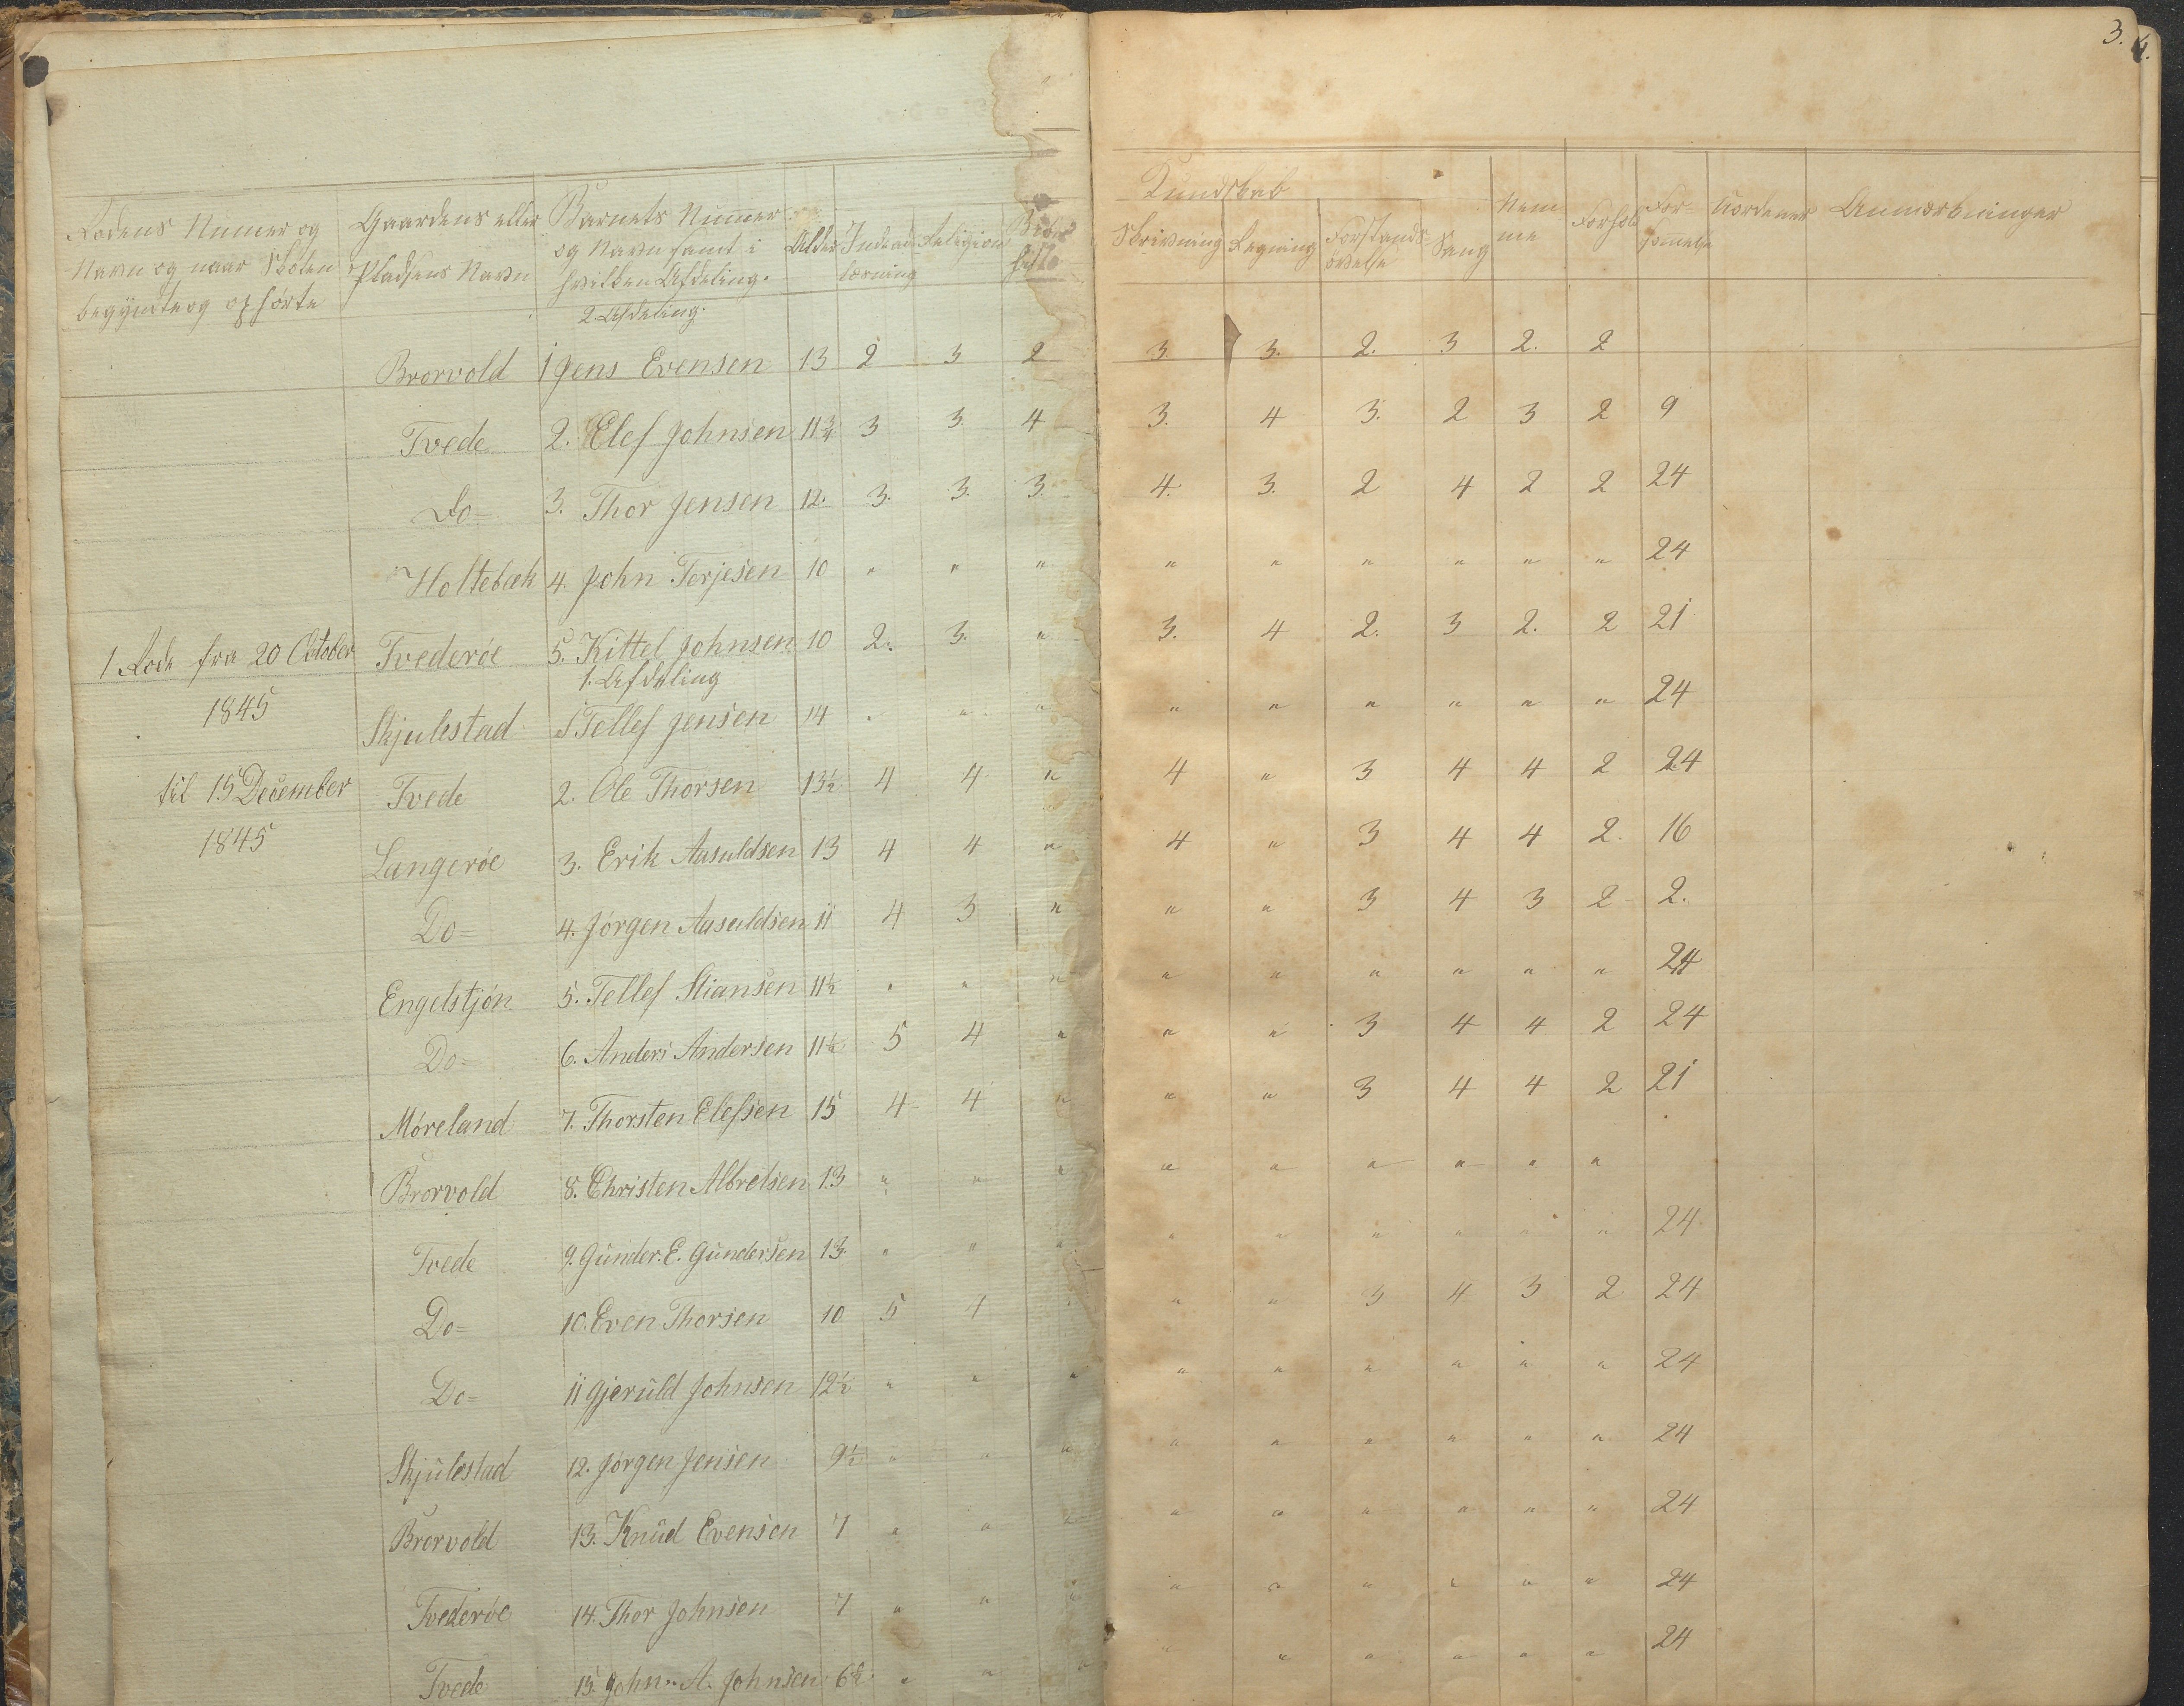 3. 4.
Rodens Numer og Navn og naar Skolen begyndte og ophørte | Gaardens eller Pladsens Navn | Barnets Numer og Navn samt i hvilken Afdeling. | Alder | Indenadlæsning | Religion | Kundskab | Skrivning | Regning | Forstandsøvelse | Sang | Nemme | Forhold | Forsømmelse | Anmærkninger
2. Afdeling.
Brorvold 1 Jens Evensen 13 2 3 2 3. 3. 2. 3 2. 2
Tvede 2. Elef Johnsen 11 3/4 3 3. 4 3. 4 3. 2 3 2 9
Do 3. Thor Jensen 12. 3. 3. 3. 4. 3. 2 4 2 2 24
Holtebæk 4. John Terjesen 10 " " " " " " " " " 24
1 Rode fra 20 October Tvederöe 5. Kittel Johnsen 10 2. 3. " 3. 4 2. 3 2. 2 21
1. Afdeling
1845 Skjulestad 1 Tellef Jensen 14 " " " " " " " " " 24
til 15 December Tvede 2. Ole Thorsen 13 1/2 4 4 " 4 " 3 4 4 2 24
1845 Langeröe 3. Erik Aasuldsen 13 4 4 " 4 " 3 4 4 2. 16
Do= 4. Jörgen Aasuldsen 11 4 3 " " " 3 4 3 2 2.
Engelstjön 5. Tellef Stiansen 11 1/2 " " " " " " " " " 24
Do= 6. Anders Andersen 11 1/2 5 4 " " " 3 4 4 2 24
Möreland 7. Thorsten Elefsen 15 4 4 " " " 3 4 4 2 21
Brorvold 8. Christen Albretsen 13 " " " " " " " " "
Tvede 9. Gunder. E. Gundersen 13 " " " " " " " " " 24
Do= 10. Even Thorsen 10 5 4 " " " 3 4 3 2 24
Do= 11 Gjeruld Johnsen 12 1/2 " " " " " " " " " 24
Skjulestad 12. Jörgen Jensen 9 1/2 " " " " " " " " " 24
Brorvold 13. Knud Evensen 7 " " " " " " " " " 24
Tvederöe 14. Thor Johnsen 7 " " " " " " " " " 24
Tvede 15. John A. Johnsen " " " " " " " " " 24